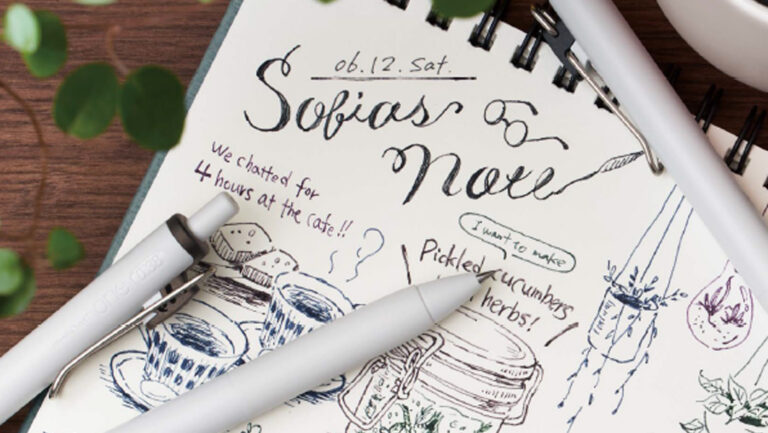 06.12.Sat.
Sofias
Note
We chatted for
4 hours at the cafe!!
I want to make
Pickled cucumbers
herbs!